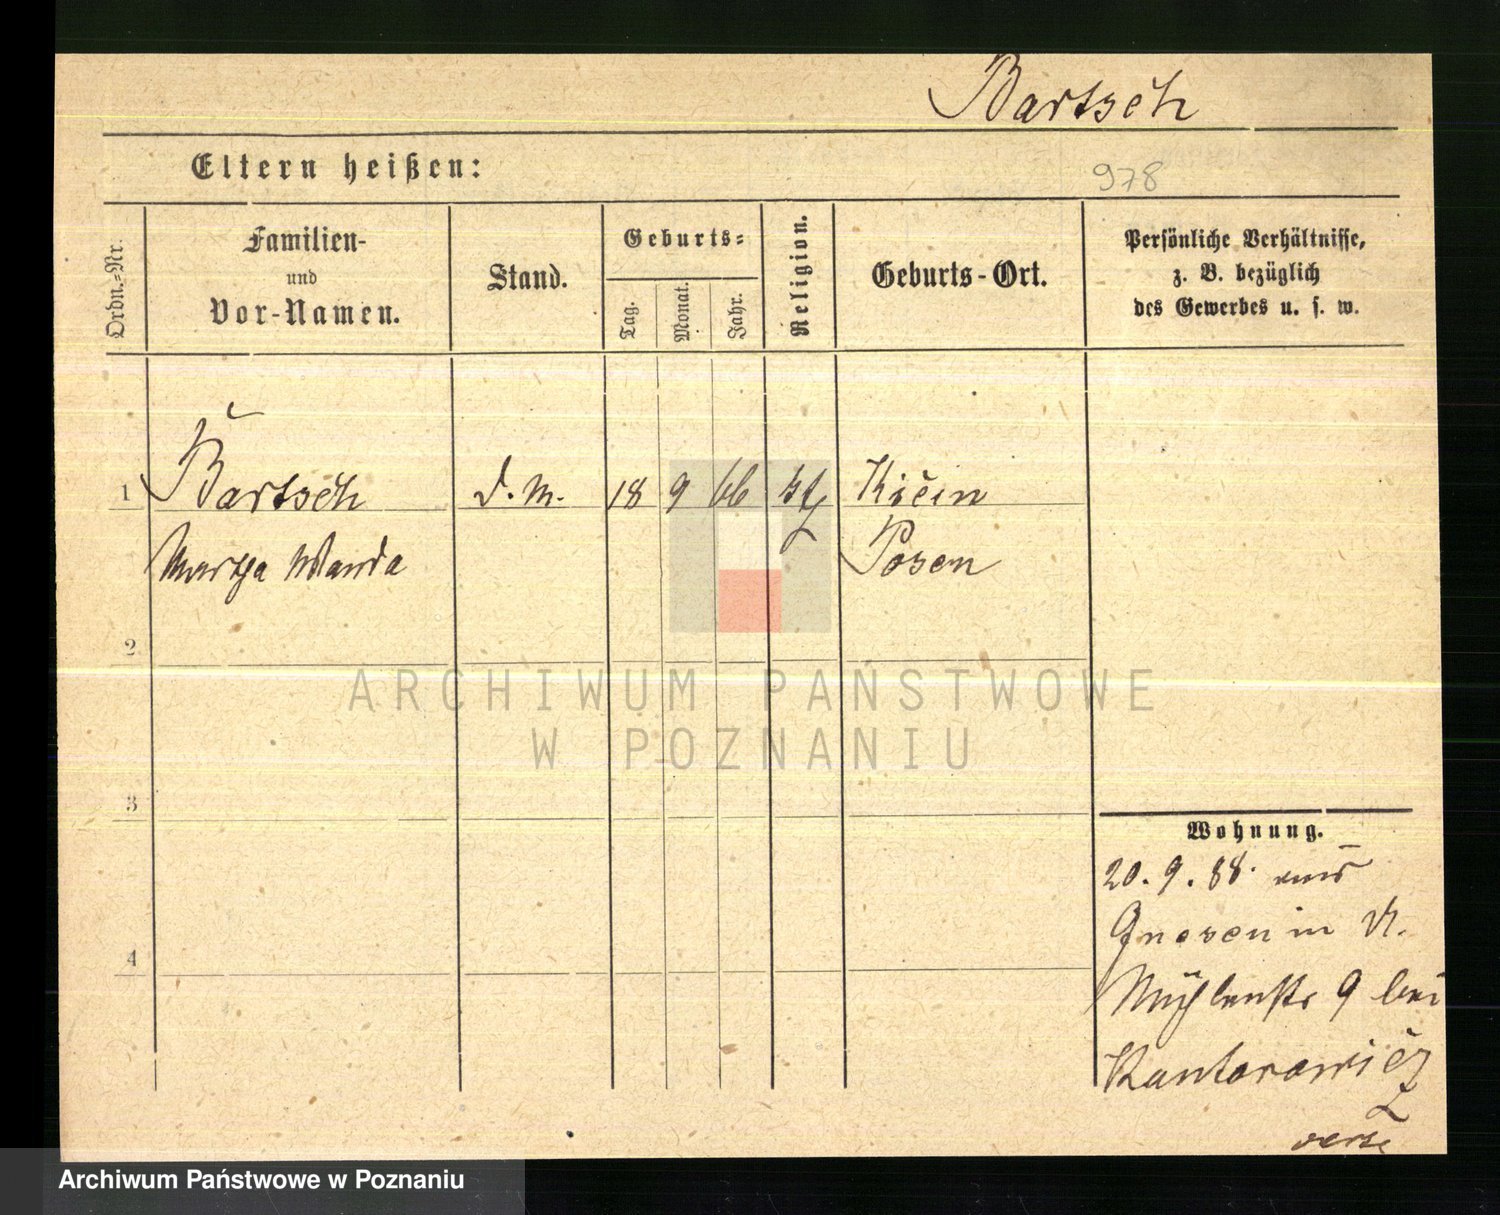 Bartsch
Eltern heißen:
978
Ordn.-Nr.
Familien-
und
Vor-Namen.
Stand.
Geburts-
Tag.
Monat.
Jahr.
Religion.
Geburts-Ort.
Persönliche Verhältnisse,
z. B. bezüglich
des Gewerbes u. s. w.
1 Bartsch d. M. 18 9 66 Kicin
Martha Wanda Posen
2
3
4
Wohnung.
20. 9. 88. aus
Gnesen in
Mühlenstr 9 bei
Kantorowicz
ARCHIWUM PAŃSTWOWE
W POZNANIU
Archiwum Państwowe w Poznaniu